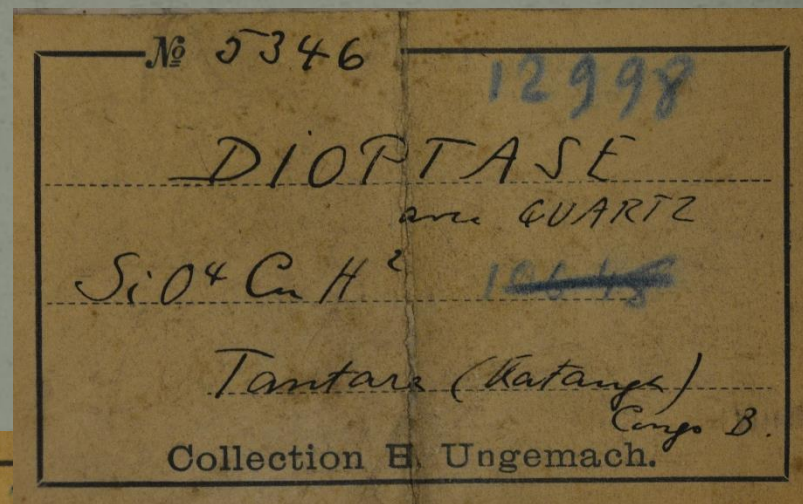 № 5346
12998
DIOPTASE
avec QUARTZ
SiO⁴ Cu H²
Tantara (Katanga)
Congo B.
Collection H. Ungemach.